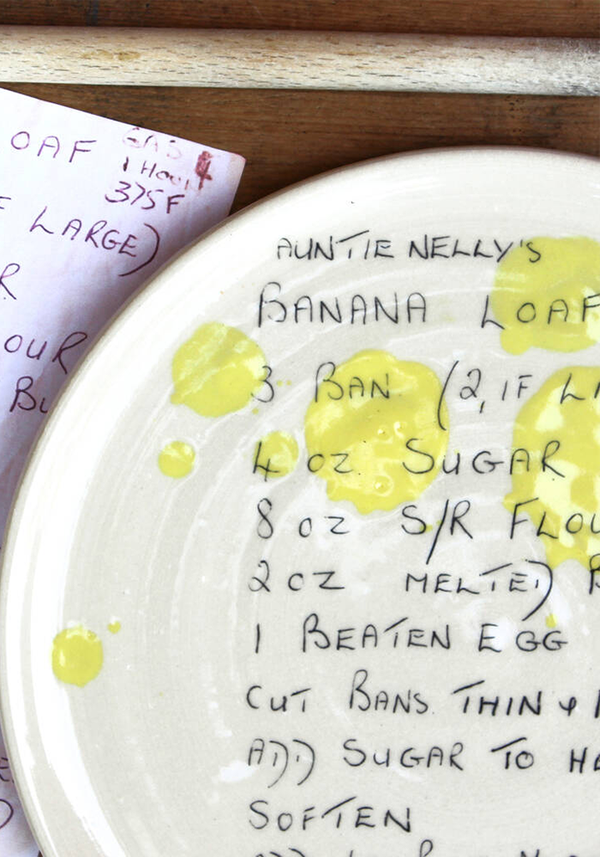 OAF
GAS 4
1 HOUR
375F
F LARGE)
R
OUR
BU
AUNTIE NELLY'S
BANANA LOAF
3 BAN. (2, IF LA
4 OZ SUGAR
8 OZ S/R FLOU
2 OZ MELTED B
1 BEATEN EGG
CUT BANS THIN &
ADD SUGAR TO HE
SOFTEN